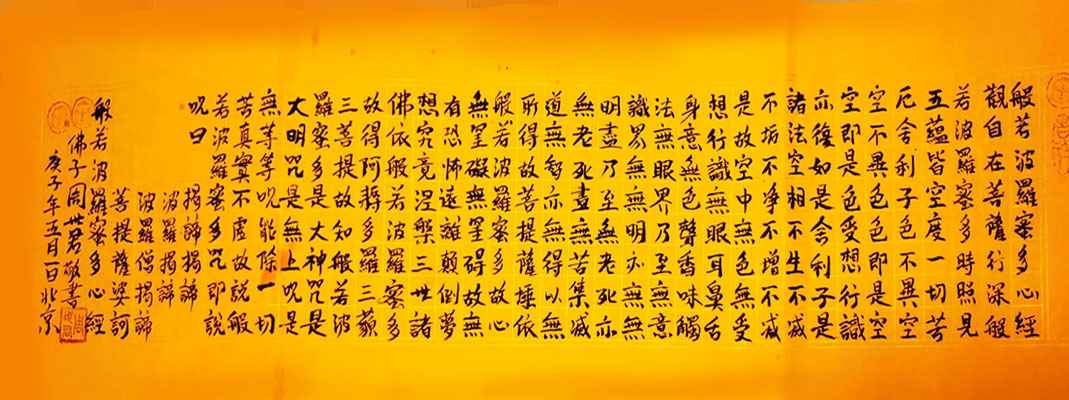 般若波羅蜜多心經
觀自在菩薩行深般
若波羅蜜多時照見
五蘊皆空度一切苦
厄舍利子色不異空
空不異色色即是空
空即是色受想行識
亦復如是舍利子是
諸法空相不生不滅
不垢不净不增不減
是故空中無色無受
想行識無眼耳鼻舌
身意無色聲香味觸
法無眼界乃至無意
識界無無明亦無無
明盡乃至無老死亦
無老死盡無苦集滅
道無智亦無得以無
所得故菩提薩埵依
般若波羅蜜多故心
無罣礙無罣碍故無
有恐怖遠離顛倒夢
想究竟涅槃三世諸
佛依般若波羅蜜多
故得阿耨多羅三藐
三菩提故知般若波
羅蜜多是大神咒是
大明咒是無上咒是
無等等呪能除一切
苦真實不虛故說般
若波羅蜜多咒即說
呪曰
揭諦揭諦
波羅揭諦
波羅僧揭諦
菩提薩婆訶
般若波羅蜜多心經
佛子周世君敬書
庚子年五月日北京